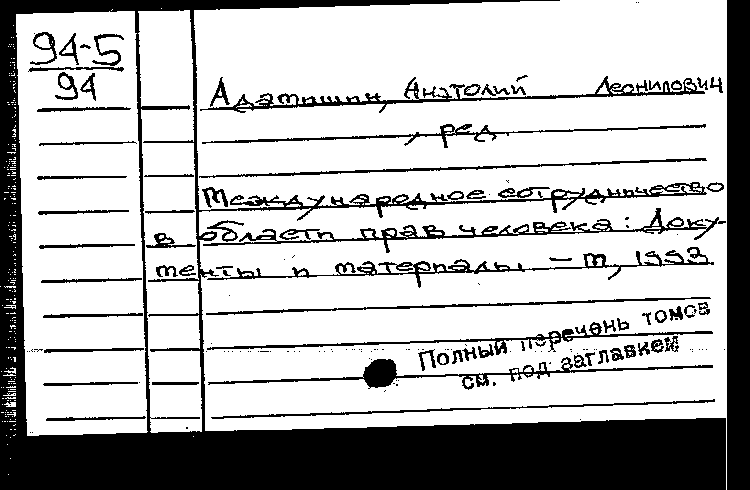 94-5
94
Адамишин, Анатолий Леонидович
, ред.
Международное сотрудничество
в области прав человека: Доку-
менты и материалы. — М, 1993
Полный перечень томов
см. под заглавием